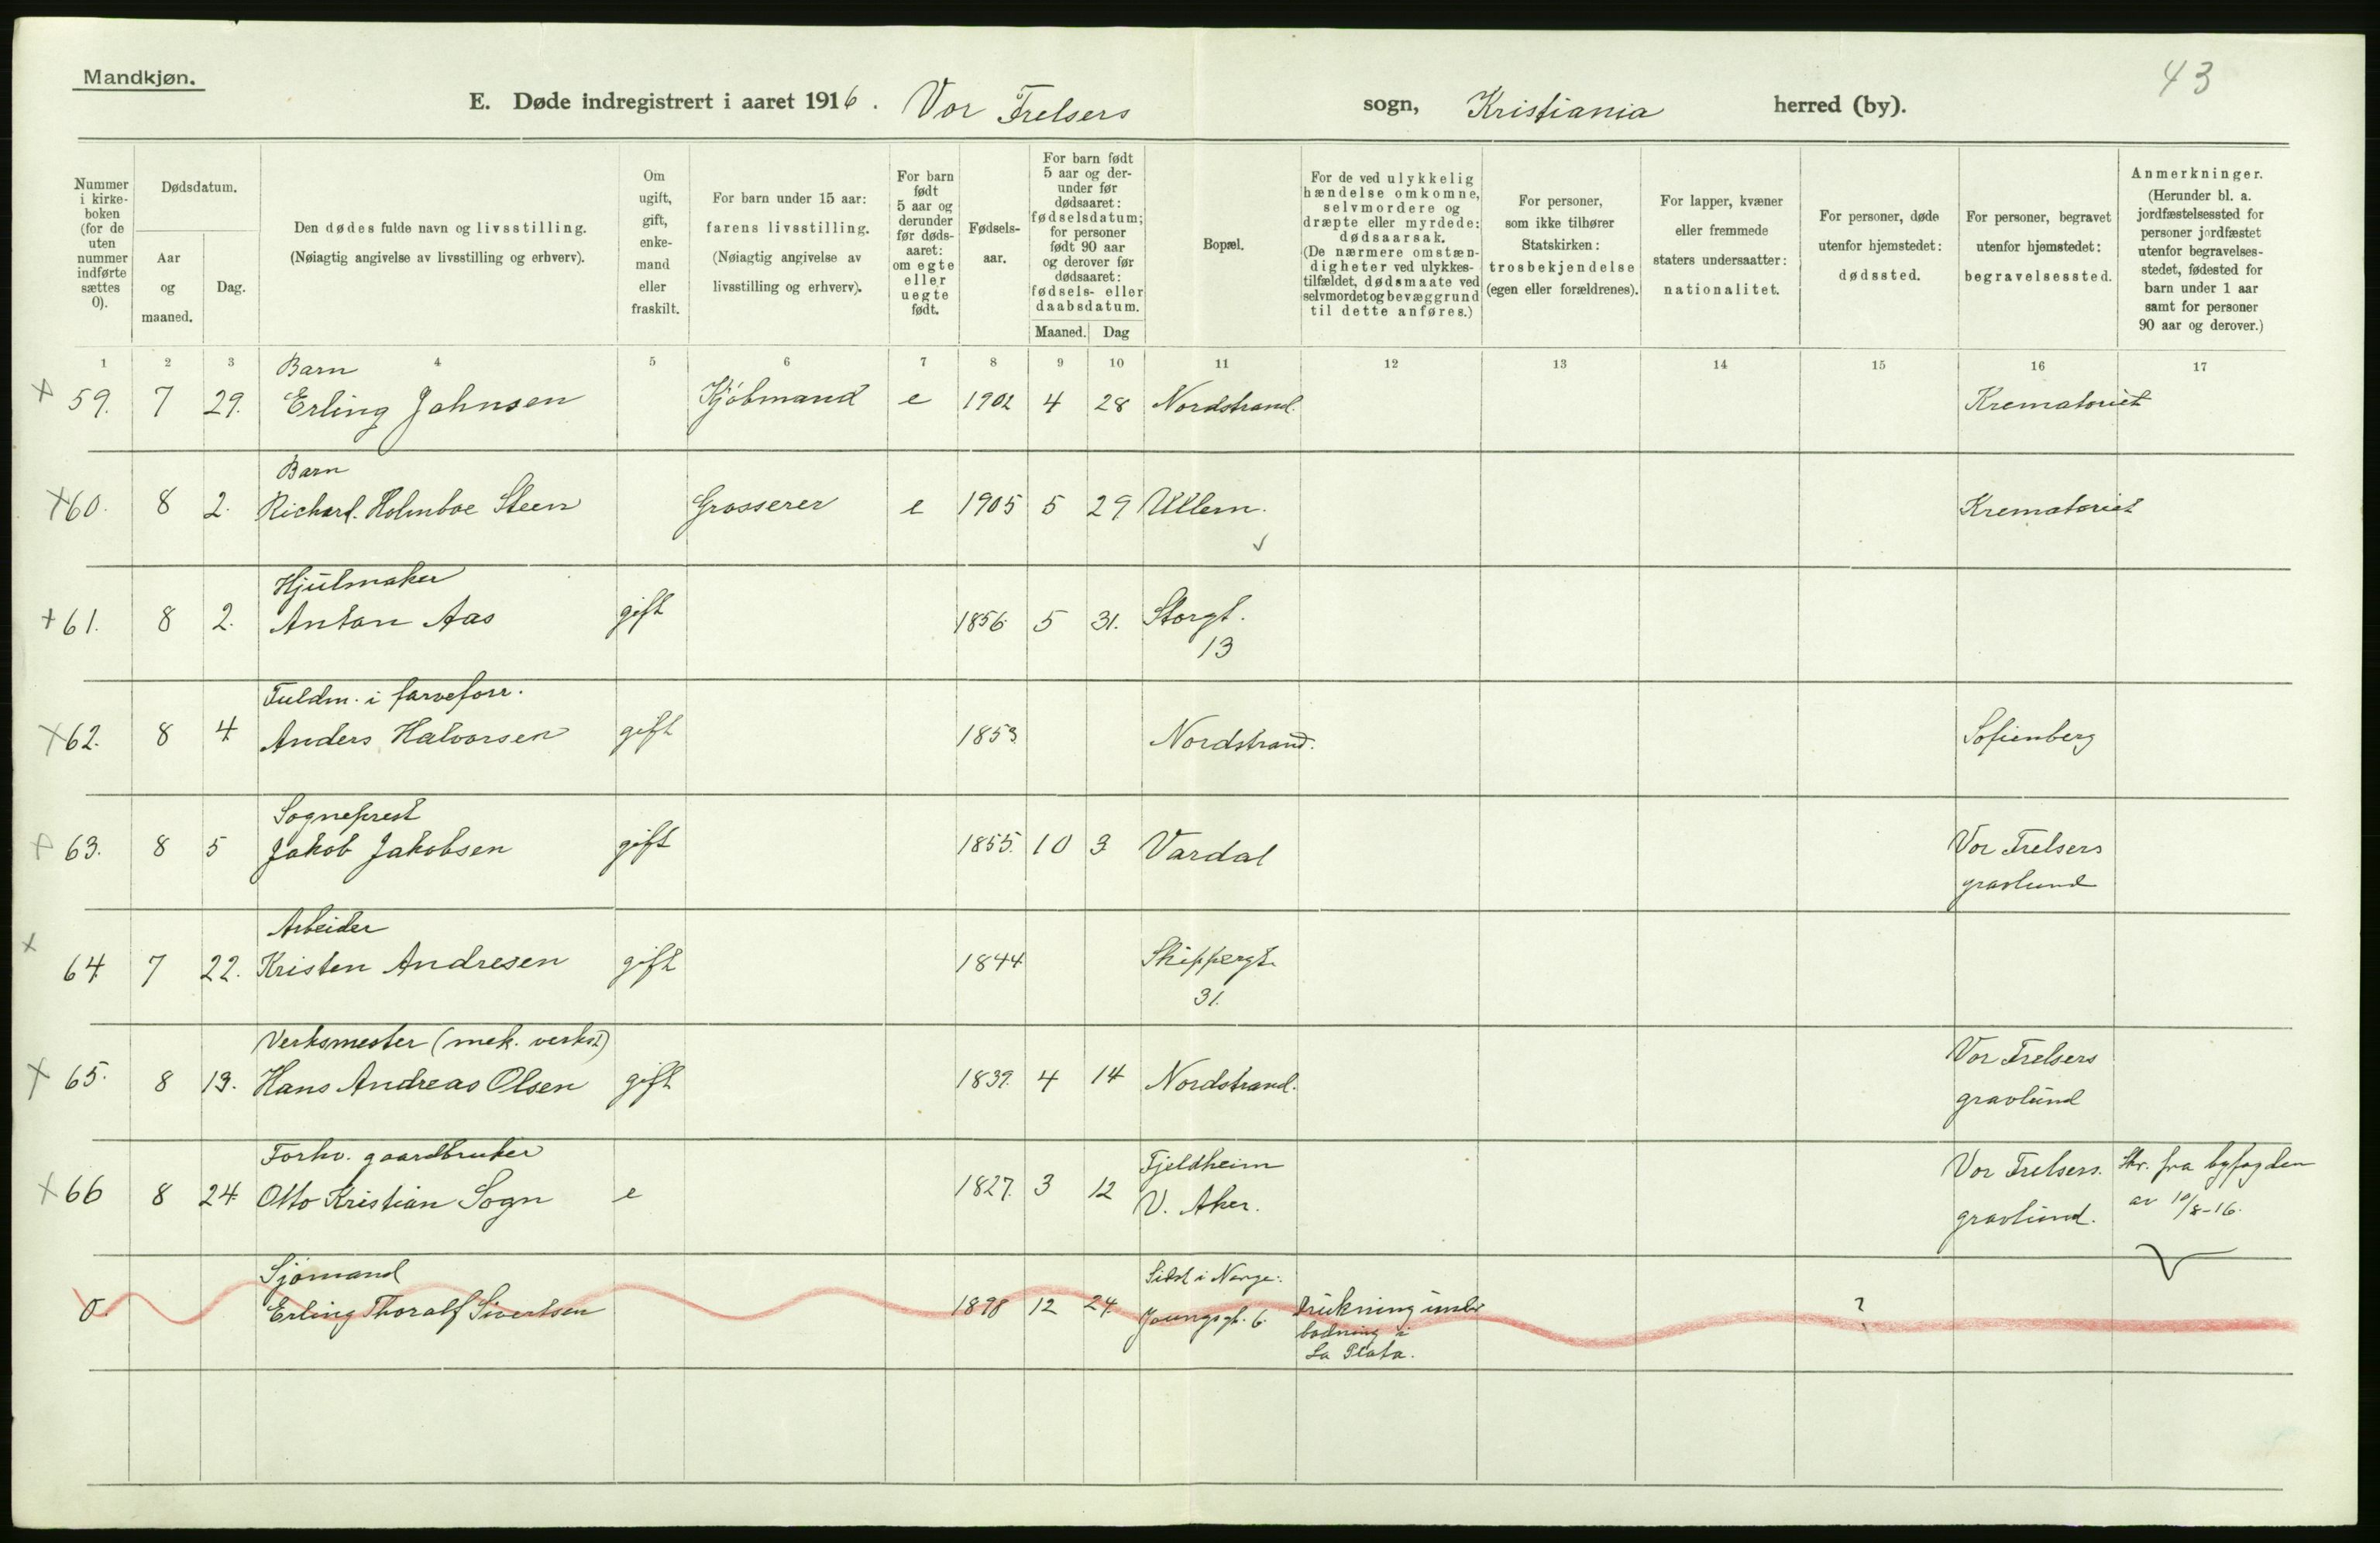 Mandkjøn.
43
E. Døde indregistrert i aaret 1916. Vor Frelsers sogn, Kristiania herred (by).
Nummer i kirke-boken (for de uten nummer indførte sættes 0).
Dødsdatum.
Aar og maaned.
Dag.
Den dødes fulde navn og livsstilling.
(Nøiagtig angivelse av livsstilling og erhverv).
Om ugift, gift, enke-mand eller fraskilt.
For barn under 15 aar: farens livsstilling.
(Nøiagtig angivelse av livsstilling og erhverv).
For barn født 5 aar og derunder før døds-aaret: om egte eller uegte født.
Fødsels-aar.
For barn født 5 aar og der-under før dødsaaret: fødselsdatum; for personer født 90 aar og derover før dødsaaret: fødsels- eller daabsdatum.
Maaned. Dag
Bopæl.
For de ved ulykkelig hændelse omkomne, selvmordere og dræpte eller myrdede: dødsaarsak.
(De nærmere omstæn-digheter ved ulykkes-tilfældet, dødsmaate ved selvmordet og bevæggrund til dette anføres.)
For personer, som ikke tilhører Statskirken: trosbekjendelse (egen eller forældrenes).
For lapper, kvæner eller fremmede staters undersaatter: nationalitet.
For personer, døde utenfor hjemstedet: dødssted.
For personer, begravet utenfor hjemstedet: begravelsessted.
Anmerkninger.
(Herunder bl. a. jordfæstelsessted for personer jordfæstet utenfor begravelses-stedet, fødested for barn under 1 aar samt for personer 90 aar og derover.)
1 2 3 4 5 6 7 8 9 10 11 12 13 14 15 16 17
Barn
59. 7 29. Erling Johnsen Kjøbmand e 1902 4 28 Nordstrand. Krematoriet
Barn
60. 8 2. Richard Holmboe Steen Grosserer e 1905 5 29 Ullern. Krematoriet
Hjulmaker
61. 8 2. Anton Aas gift 1856 5 31. Storgt.
13
Fuldm. i farveforr.
62. 8 4 Anders Halvorsen gift 1853 Nordstrand. Sofienberg
Sogneprest
63. 8 5 Jakob Jakobsen gift 1855. 10 3 Vardal Vor Frelsers
gravlund
Arbeider
64 7 22. Kristen Andresen gift 1844 Skippergt.
31.
Verksmester (mek. verkst) Vor Frelsers
65. 8 13. Hans Andreas Olsen gift 1839. 4 14 Nordstrand. gravlund
Forhv. gaardbruker Fjeldheim Vor Frelsers. Skr. fra byfogden
66 8 24. Otto Kristian Sogn e 1827. 3 12 V. Aker. gravlund. av 10/8-16.
Sjømand Sidst i Norge:
0. Erling Thoralf Sivertsen 1898 12 24. Youngsgt. 6. Drukning under ?
badning i
La Plata.